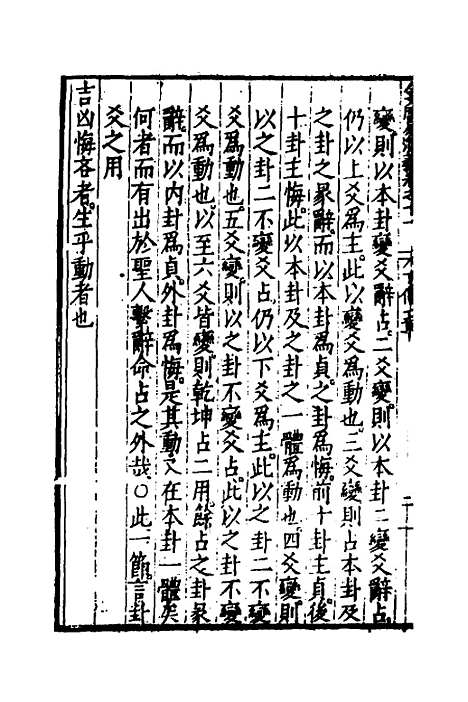 變則以本卦變爻辭占。二爻變。則以本卦二變爻辭占。
仍以上爻爲主。此以變爻爲動也。三爻變則占本卦及
之卦之彖辭。而以本卦爲貞。之卦爲悔。前十卦主貞。後
十卦主悔。此以本卦及之卦之一體爲動也。四爻變。則
以之卦二不變爻占。仍以下爻爲主。此以之卦二不變
爻爲動也。五爻變。則以之卦不變爻占。此以之卦不變
爻爲動也。以至六爻皆變。則乾坤占二用。餘占之卦彖
辭。而以内卦爲貞。外卦爲悔。是其動又在本卦一體矣
何者而有出於聖人繫辭命占之外哉。○此一節。言卦
爻之用
吉凶悔吝者。生乎動者也